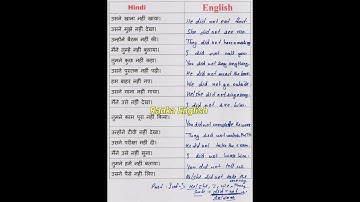 Hindi English
उसने खाना नहीं खाया। He did not eat food.
उसने मुझे नहीं देखा। She did not see me.
उन्होंने बैठक नहीं की। They did not have a meeting
मैंने तुम्हें नहीं बुलाया। I did not call you.
तुमने कुछ नहीं कहा। You did not say anything.
उसने पुस्तक नहीं पढ़ी। He did not read the book.
हम बाहर नहीं गए। We did not go outside
उसने गाना नहीं गाया। He/she did not sing song.
मैंने उसे नहीं देखा। I did not see him.
Ranka English
तुमने काम पूरा नहीं किया। You did not complete the work
उन्होंने टीवी नहीं देखा। They did not watch the TV
उसने परीक्षा नहीं दी। He did not take the exam.
मैंने उसे नहीं सुना। I did not hear him.
तुमने हमें नहीं बताया। You did not tell us.
उसने पैसे नहीं लिए। He/she did not take the money